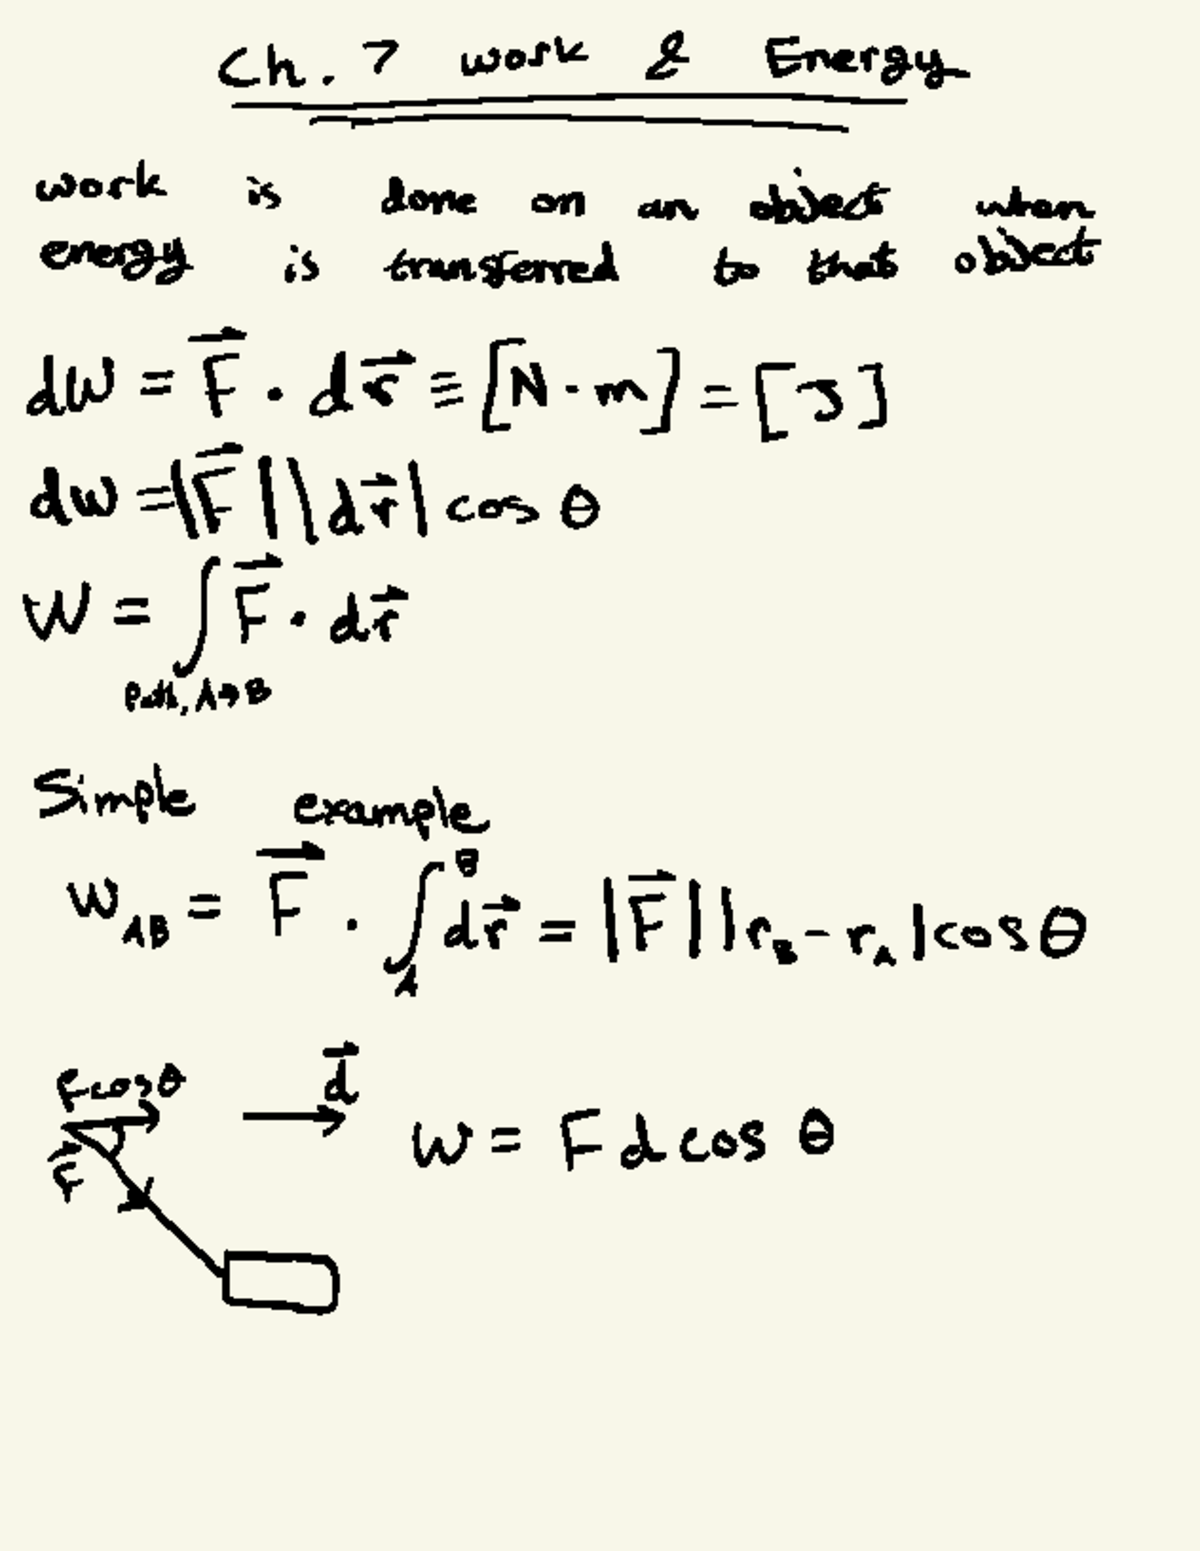 Ch. 7 work & Energy
work is done on an object when
energy is transferred to that object
dW = F⃗ · dr⃗ ≡ [N·m] = [J]
dw = |F⃗||dr⃗| cos θ
W = ∫ F⃗ · dr⃗
Path, A→B
Simple example
W_AB = F⃗ · ∫_A^B dr⃗ = |F⃗||r_B - r_A|cos θ
Fcosθ
d⃗
F⃗
W = F d cos θ